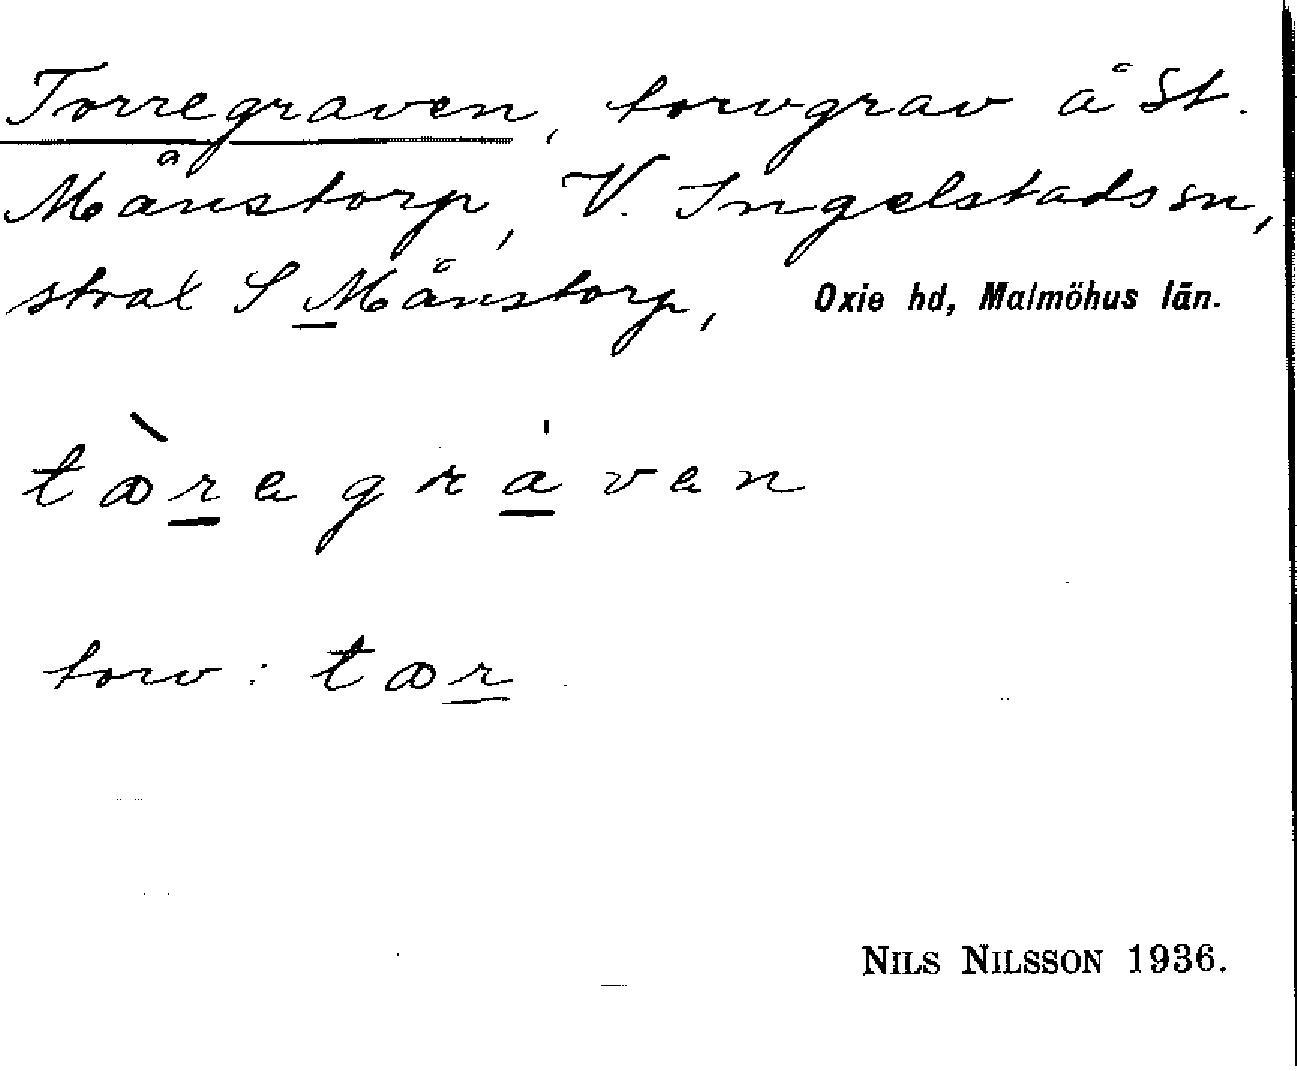 Torregraven, torvgrav å St.
Månstorp, V. Ingelstads sn,
strax S Månstorp, Oxie hd, Malmöhus län.
tꝏ̀regrȧven
torv: tꝏr
NILS NILSSON 1936.